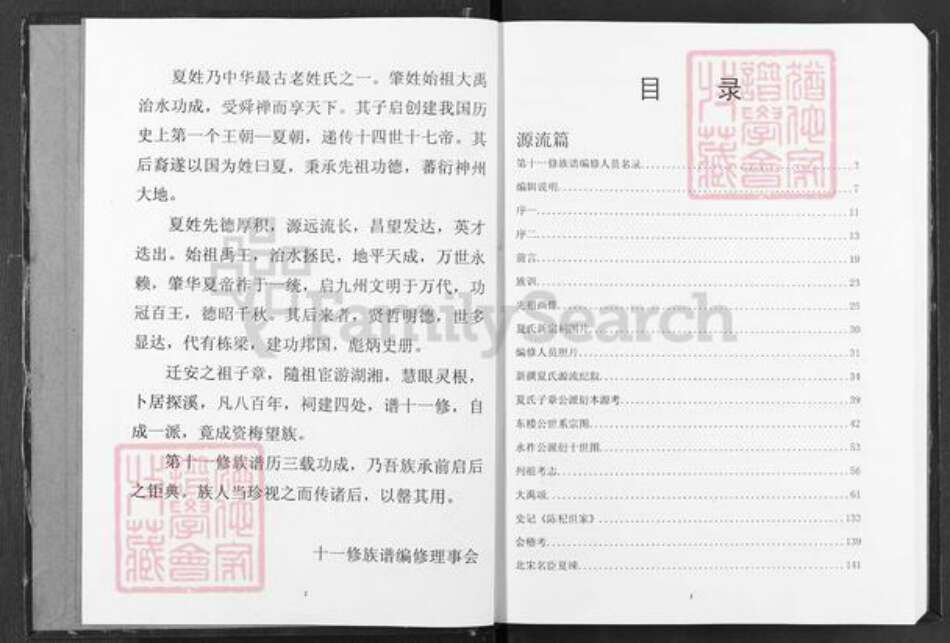 夏姓乃中华最古老姓氏之一。肇姓始祖大禹
治水功成，受舜禅而享天下。其子启创建我国历
史上第一个王朝—夏朝，递传十四世十七帝。其
后裔遂以国为姓曰夏，秉承先祖功德，蕃衍神州
大地。
夏姓先德厚积，源远流长，昌望发达，英才
迭出。始祖禹王，治水拯民，地平天成，万世永
赖，肇华夏帝祚于一统，启九州文明于万代，功
冠百王，德昭千秋。其后来者，贤哲明德，世多
显达，代有栋梁，建功邦国，彪炳史册。
迁安之祖子章，随祖宦游湖湘，慧眼灵根，
卜居探溪，凡八百年，祠建四处，谱十一修，自
成一派，竟成资梅望族。
第十一修族谱历三载功成，乃吾族承前启后
之钜典，族人当珍视之而传诸后，以罄其用。
十一修族谱编修理事会
2
目 录
源流篇
第十一修族谱编修人员名录 3
编辑说明 7
序一 11
序二 13
前言 19
族训 23
先祖画像 25
夏氏新宗祠图片 30
编修人员照片 31
新撰夏氏源流纪叙 34
夏氏子章公派衍本源考 39
东楼公世系宗图 42
永祚公派衍十世图 53
列祖考志 56
大禹颂 61
史记《陈杞世家》 133
会稽考 139
北宋名臣夏竦 141
1
FamilySearch